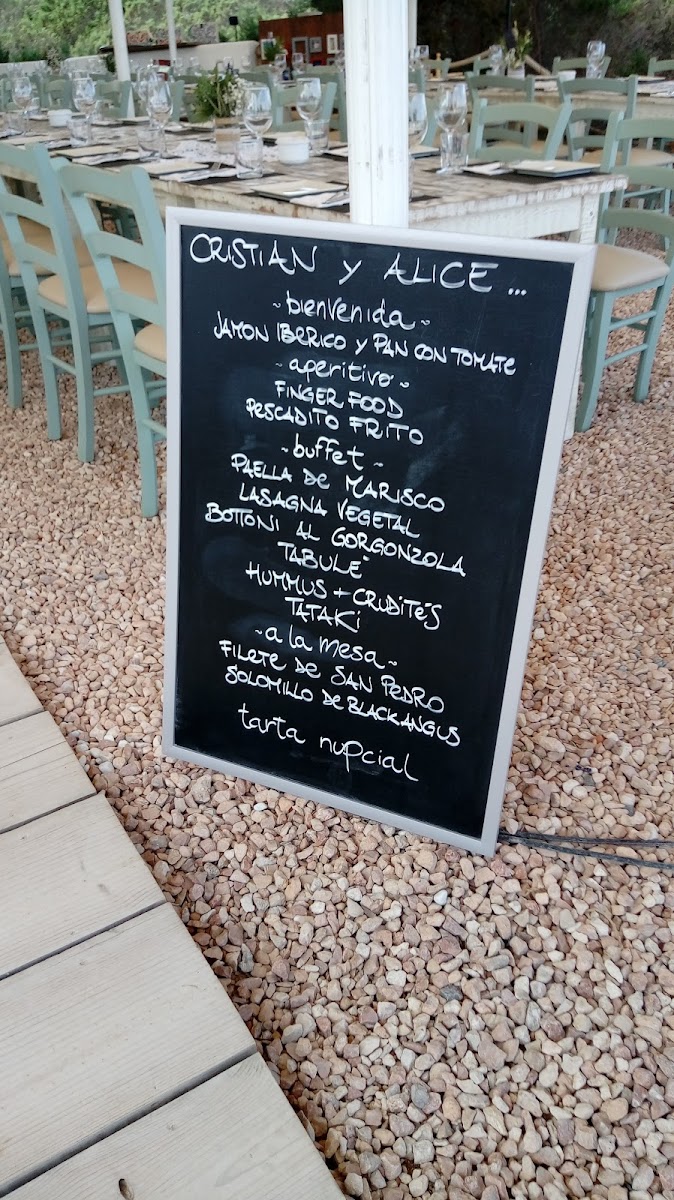 CRISTIAN y ALICE...
~bienvenida~
JAMON IBERICO y PAN CON TOMATE
~aperitivo~
FINGER FOOD
PESCADITO FRITO
~buffet~
PAELLA DE MARISCO
LASAGNA VEGETAL
BOTTONI AL GORGONZOLA
TABULÉ
HUMMUS + CRUDITÉS
TATAKI
~a la mesa~
FILETE DE SAN PEDRO
SOLOMILLO DE BLACK ANGUS
tarta nupcial